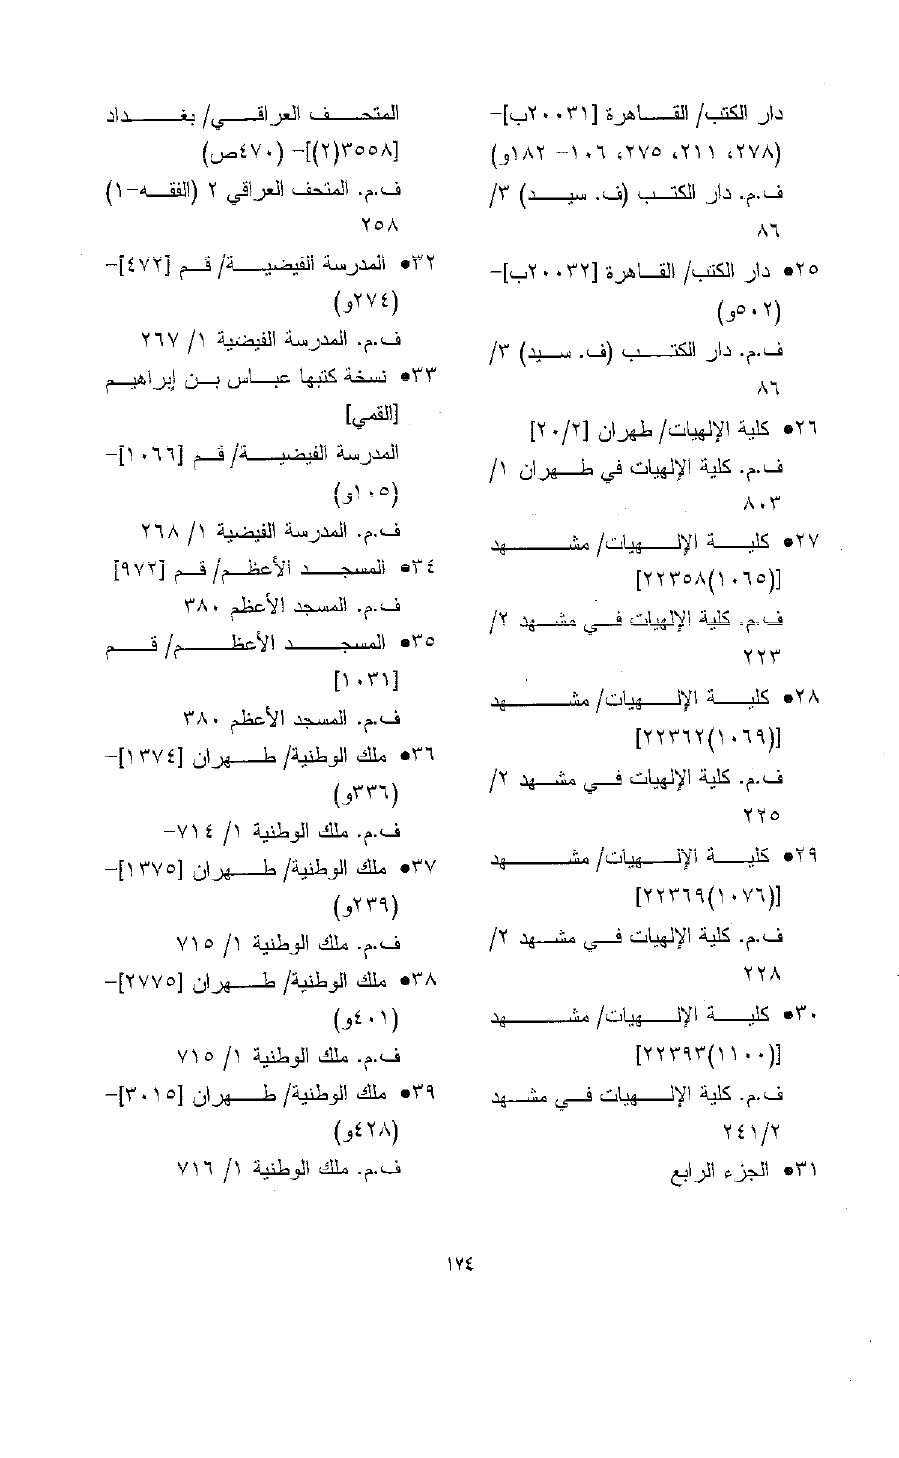 دار الكتب/ القاهرة [٢٠٠٣١ب]-
(٢٧٨، ٢١١، ٢٧٥، ١٠٦- ١٨٢و)
ف.م. دار الكتب (ف. سيد) ٣/
٨٦
٢٥• دار الكتب/ القاهرة [٢٠٠٣٢ب]-
(٥٠٢و)
ف.م. دار الكتب (ف. سيد) ٣/
٨٦
٢٦• كلية الإلهيات/ طهران [٢٠/٢]
ف.م. كلية الإلهيات في طهران ١/
٨٠٣
٢٧• كلية الإلهيات/ مشهد
[٢٢٣٥٨(١٠٦٥)]
ف.م. كلية الإلهيات في مشهد ٢/
٢٢٣
٢٨• كلية الإلهيات/ مشهد
[٢٢٣٦٢(١٠٦٩)]
ف.م. كلية الإلهيات في مشهد ٢/
٢٢٥
٢٩• كلية الإلهيات/ مشهد
[٢٢٣٦٩(١٠٧٦)]
ف.م. كلية الإلهيات في مشهد ٢/
٢٢٨
٣٠• كلية الإلهيات/ مشهد
[٢٢٣٩٣(١١٠٠)]
ف.م. كلية الإلهيات في مشهد
٢٤١/٢
٣١• الجزء الرابع
المتحف العراقي/ بغداد
[٣٥٥٨(٢)]- (٤٧٠ص)
ف.م. المتحف العراقي ٢ (الفقه-١)
٢٥٨
٣٢• المدرسة الفيضية/ قم [٤٧٢]-
(٢٧٤و)
ف.م. المدرسة الفيضية ١/ ٢٦٧
٣٣• نسخة كتبها عباس بن إبراهيم
[القمي]
المدرسة الفيضية/ قم [١٠٦٦]-
(١٠٥و)
ف.م. المدرسة الفيضية ١/ ٢٦٨
٣٤• المسجد الأعظم/ قم [٩٧٢]
ف.م. المسجد الأعظم ٣٨٠
٣٥• المسجد الأعظم/ قم
[١٠٣١]
ف.م. المسجد الأعظم ٣٨٠
٣٦• ملك الوطنية/ طهران [١٣٧٤]-
(٣٣٦و)
ف.م. ملك الوطنية ١/ ٧١٤-
٣٧• ملك الوطنية/ طهران [١٣٧٥]-
(٢٣٩و)
ف.م. ملك الوطنية ١/ ٧١٥
٣٨• ملك الوطنية/ طهران [٢٧٧٥]-
(٤٠١و)
ف.م. ملك الوطنية ١/ ٧١٥
٣٩• ملك الوطنية/ طهران [٣٠١٥]-
(٤٢٨و)
ف.م. ملك الوطنية ١/ ٧١٦
١٧٤